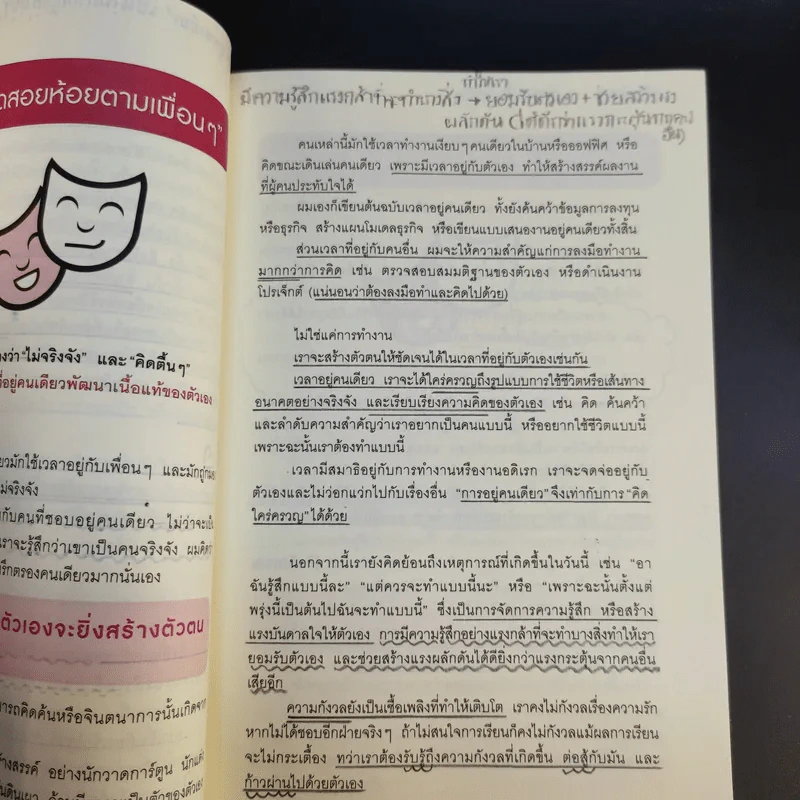 ดสอยห้อยตามเพื่อนๆ"
งว่า "ไม่จริงจัง" และ "คิดตื้นๆ"
ที่อยู่คนเดียวพัฒนาเนื้อแท้ของตัวเอง
มักใช้เวลาอยู่กับเพื่อนๆ และมักถูก
ม่จริงจัง
กับคนที่ชอบอยู่คนเดียว ไม่ว่าจะเป็น
ราจะรู้สึกว่าเขาเป็นคนจริงจัง ผมคิดว่า
รึกตรองคนเดียวมากนั่นเอง
ตัวเองจะยิ่งสร้างตัวตน
ารถคิดค้นหรือจินตนาการนั้นเกิดจาก
างสรรค์ อย่างนักวาดการ์ตูน นักแต่ง
ทำไห้เรา
มีความรู้สึกแรงกล้าที่จะทำบางสิ่ง → ยอมรับตัวเอง + ช่วยสร้างแรง
ผลักดัน
คนเหล่านี้มักใช้เวลาทำงานเงียบๆ คนเดียวในบ้านหรือออฟฟิศ หรือ
คิดขณะเดินเล่นคนเดียว เพราะมีเวลาอยู่กับตัวเอง ทำให้สร้างสรรค์ผลงาน
ที่ผู้คนประทับใจได้
ผมเองก็เขียนต้นฉบับเวลาอยู่คนเดียว ทั้งยังค้นคว้าข้อมูลการลงทุน
หรือธุรกิจ สร้างแผนโมเดลธุรกิจ หรือเขียนแบบเสนองานอยู่คนเดียวทั้งสิ้น
ส่วนเวลาที่อยู่กับคนอื่น ผมจะให้ความสำคัญแก่การลงมือทำงาน
มากกว่าการคิด เช่น ตรวจสอบสมมติฐานของตัวเอง หรือดำเนินงาน
โปรเจ็กต์ (แน่นอนว่าต้องลงมือทำและคิดไปด้วย)
ไม่ใช่แค่การทำงาน
เราจะสร้างตัวตนให้ชัดเจนได้ในเวลาที่อยู่กับตัวเองเช่นกัน
เวลาอยู่คนเดียว เราจะได้ใคร่ครวญถึงรูปแบบการใช้ชีวิตหรือเส้นทาง
อนาคตอย่างจริงจัง และเรียบเรียงความคิดของตัวเอง เช่น คิด ค้นคว้า
และลำดับความสำคัญว่าเราอยากเป็นคนแบบนี้ หรืออยากใช้ชีวิตแบบนี้
เพราะฉะนั้นเราต้องทำแบบนี้
เวลามีสมาธิอยู่กับการทำงานหรืองานอดิเรก เราจะจดจ่ออยู่กับ
ตัวเองและไม่วอกแวกไปกับเรื่องอื่น "การอยู่คนเดียว" จึงเท่ากับการ "คิด
ใคร่ครวญ" ได้ด้วย
นอกจากนี้เรายังคิดย้อนถึงเหตุการณ์ที่เกิดขึ้นในวันนี้ เช่น "อา
ฉันรู้สึกแบบนี้ละ" "แต่ควรจะทำแบบนี้นะ" หรือ "เพราะฉะนั้นตั้งแต่
พรุ่งนี้เป็นต้นไปฉันจะทำแบบนี้" ซึ่งเป็นการจัดการความรู้สึก หรือสร้าง
แรงบันดาลใจให้ตัวเอง การมีความรู้สึกอย่างแรงกล้าที่จะทำบางสิ่งทำให้เรา
ยอมรับตัวเอง และช่วยสร้างแรงผลักดันได้ดียิ่งกว่าแรงกระตุ้นจากคนอื่น
เสียอีก
ความกังวลยังเป็นเชื้อเพลิงที่ทำให้เติบโต เราคงไม่กังวลเรื่องความรัก
หากไม่ได้ชอบอีกฝ่ายจริงๆ ถ้าไม่สนใจการเรียนก็คงไม่กังวลแม้ผลการเรียน
จะไม่กระเตื้อง ทว่าเราต้องรับรู้ถึงความกังวลที่เกิดขึ้น ต่อสู้กับมัน และ
ก้าวผ่านไปด้วยตัวเอง